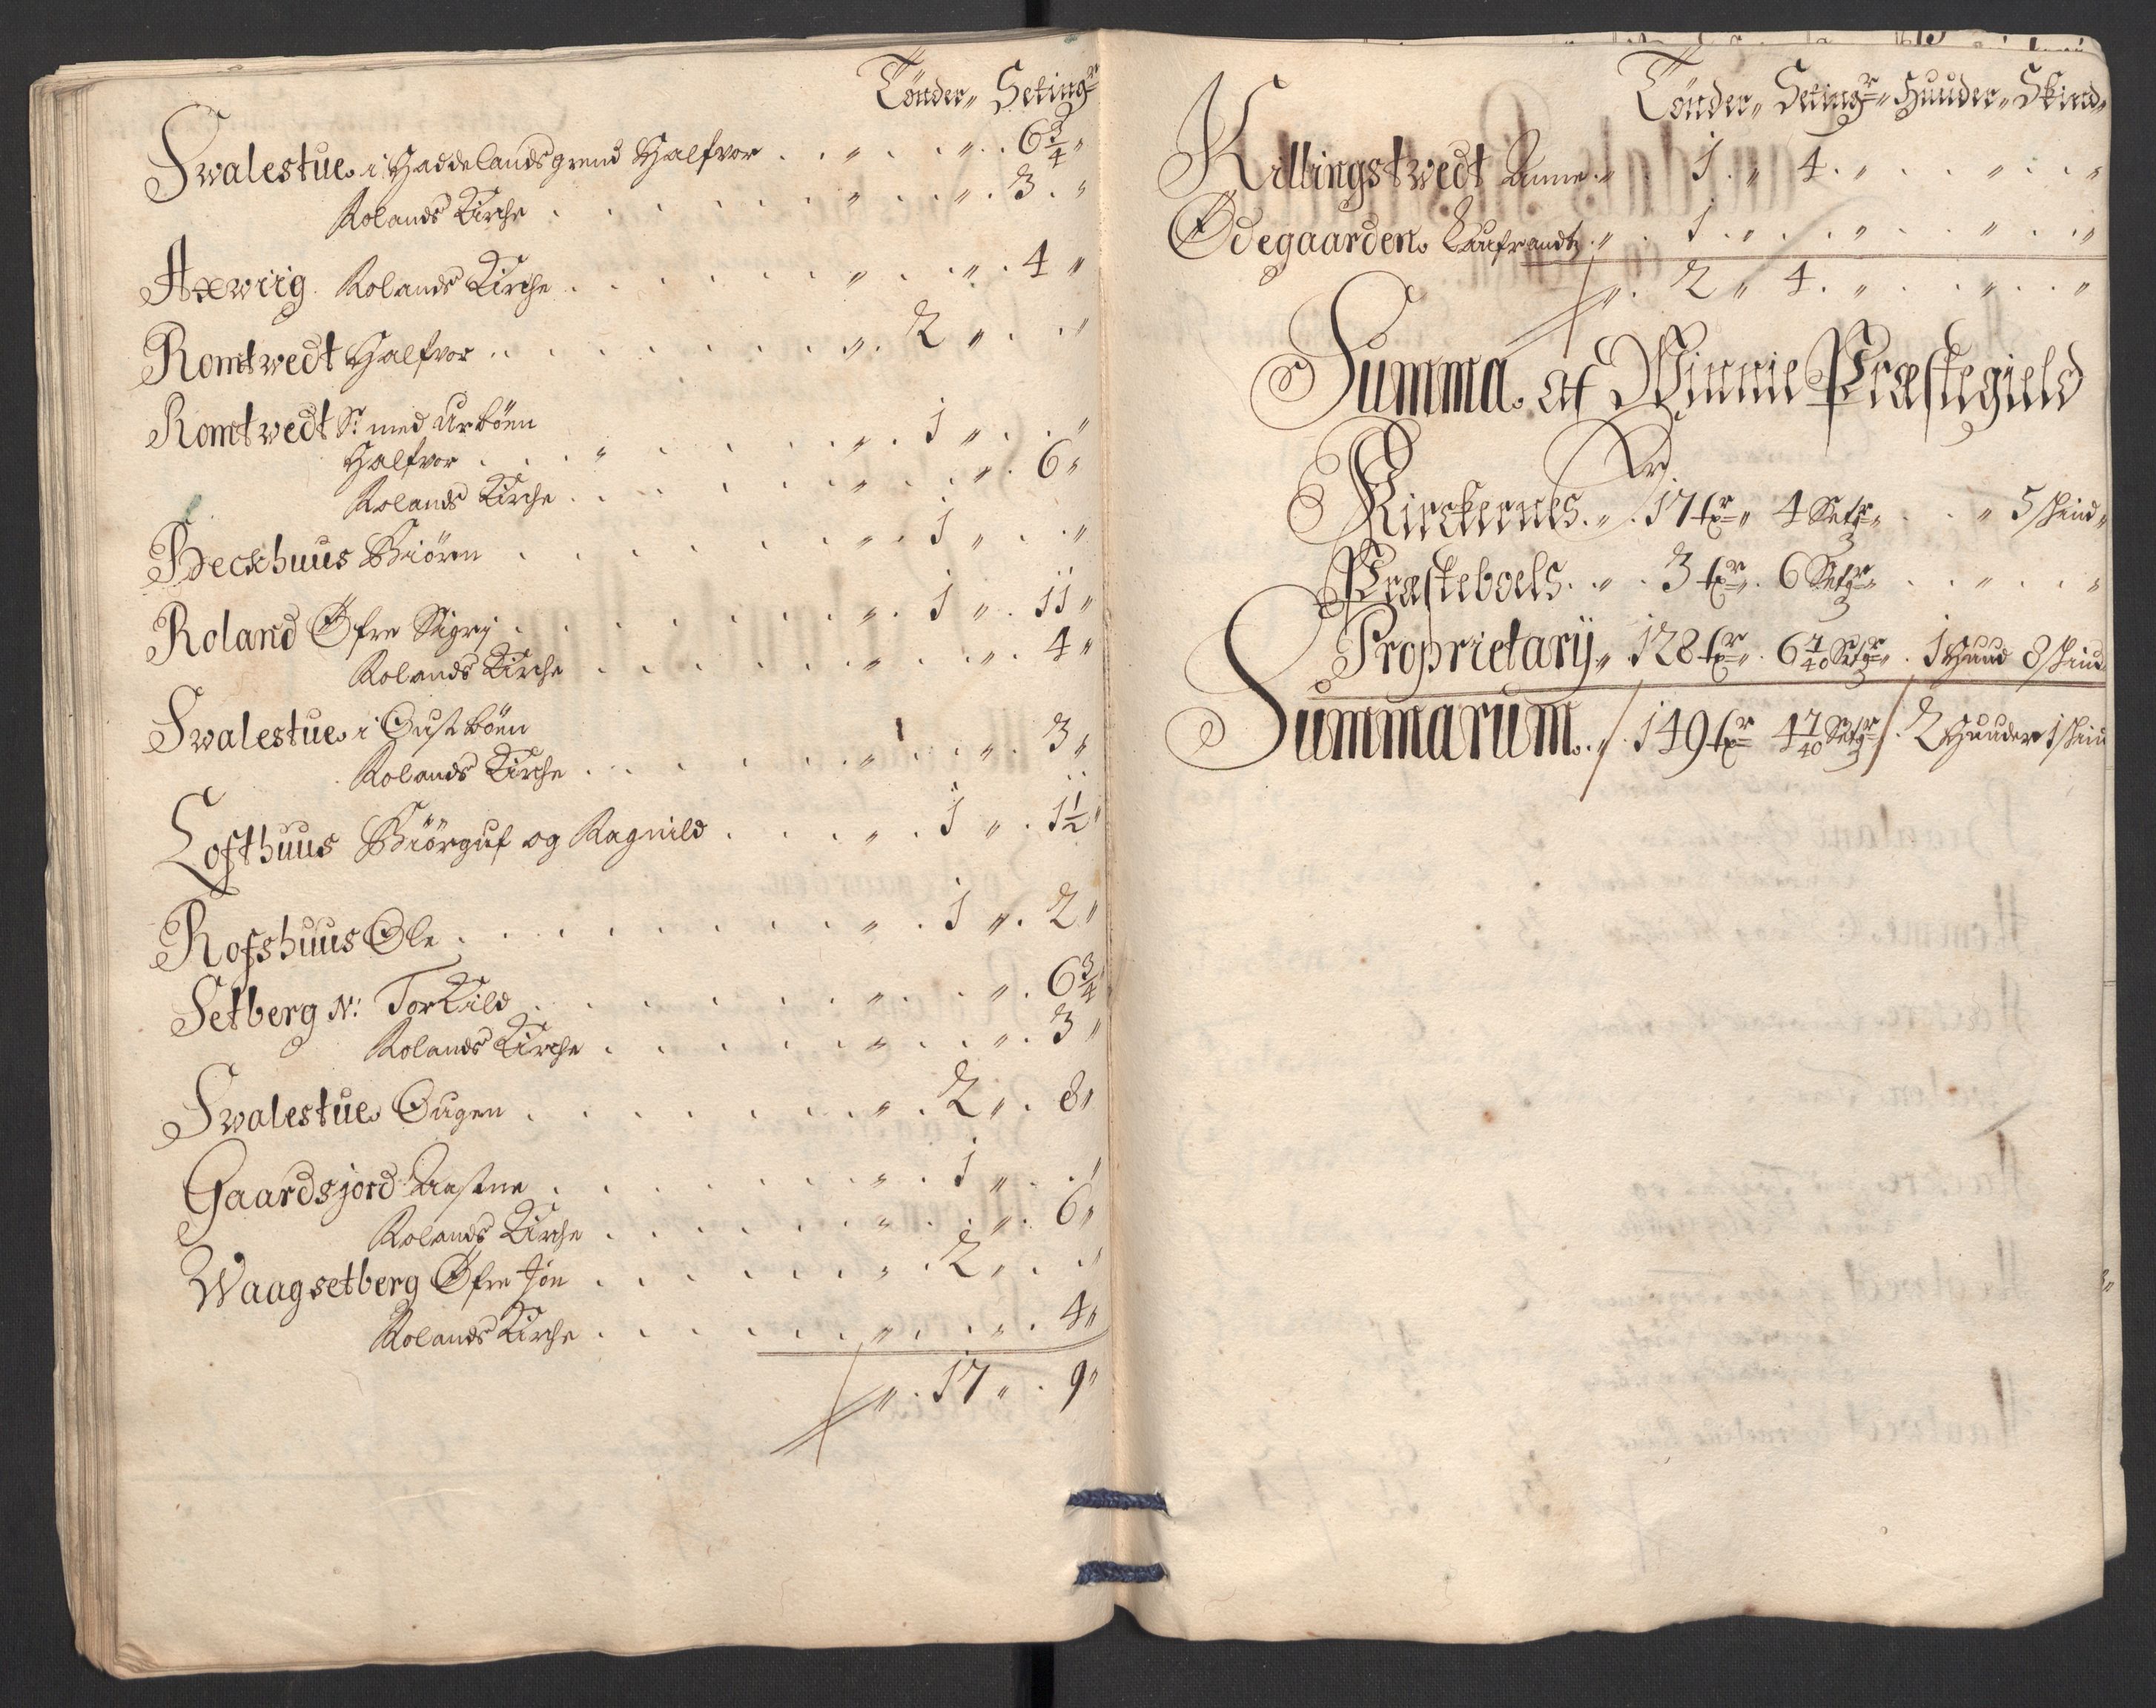 Tönder„ Seting„
Swalestue i Haddelandsgrend Halfvor . . „ . . „ . 6 3/4 „
Rolands Kirche . . . . . . „ . . „ . 3 . „
Axwiig Rolands Kirche . . . . . „ . . „ . 4 „
Romtwedt Halfvor . . . . . . „ . 2 „ . . „
Romtwedt Sr med Urböen
Halfvor . . . „ . . . . „ . 1 „ . . „
Rolands Kirche . . . . . „ . . „ . 6 „
Beckhuus Biören . . . . . . „ . 1 „ . . „
Roland Øfre Sigri . . . . . . „ . 1 „ . 11 „
Rolands Kirche . . . . . „ . . „ . 4 „
Swalestue i Oustböen
Rolands Kirche . . . . . „ . . „ . 3 „
Lofthuus Biörguf og Ragnild . . . „ . 1 „ . 1 1/2 „
Rofshuus Ole . . . . . . . „ . 1 „ . 2 „
Setberg N: Torkild . . . . . . „ . . „ . 6 3/4 „
Rolands Kirche . . . . . „ . . „ . 3 „
Swalestue Ougen . . . . . . „ . 2 „ . 8 „
Gaardsjord Aasne . . . . . . „ . 1 „ . . „
Rolands Kirche . . . . . „ . . „ . 6 „
Waagsetberg Øfre Jon . . . . . „ . 2 „ . . „
Rolands Kirche . . . . . „ . . „ . 4 „
„ . 17 „ . 9 „
Tönder„ Setingr„ Huuder„ Skind„
Killingstwedt Anne . „ . 1 . „ 4 . „ . . „ . . „
Ødegaarden . „ . 1 . „ . . „ . . „ . . „
„ . 2 „ 4 . „ . . „ . . „
Summa af Winnie Præstegield
Er
Kirckernes . „ . 17 txr „ 4 Setgr „ . . „ 5 skind „
Præsteboels . „ . 3 txr „ . 6 Setgr „ . . „ . . „
Proprietarij „ 128 txr „ . 6 7/40 Setgr „ . 1 Huud 8 skind
Summarum . „ . 149 txr 4 7/40 Setgr . 2 Huuder 1 skin